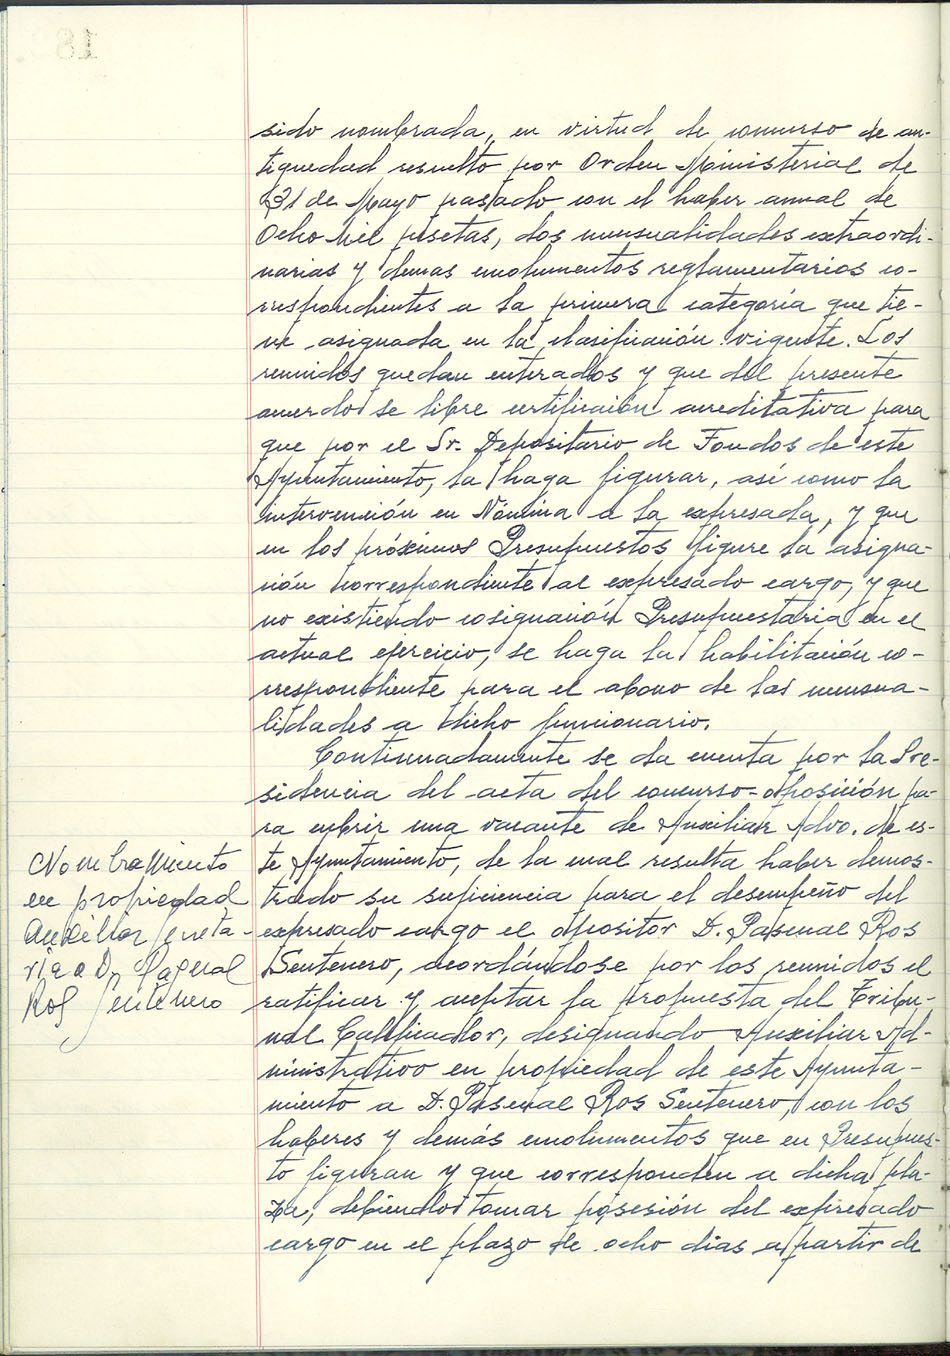 sido nombrada, en virtud de concurso de an-
tiguedad resuelto por Orden Ministerial de
31 de Mayo pasado con el haber anual de
Ocho Mil pesetas, dos mensualidades extraordi-
narias y demas emolumentos reglamentarios co-
rrespondientes a la primera categoría que tie-
ne asignada en la clasificación vigente. Los
reunidos quedan enterados y que del presente
acuerdo se libre certificación acreditativa para
que por el Sr. Depositario de Fondos de este
Ayuntamiento, la haga figurar, así como la
intervención en Nómina a la expresada, y que
en los próximos Presupuestos figure la asigna-
ción correspondiente al expresado cargo, y que
no existiendo cosignación Presupuestaria en el
actual ejercicio, se haga la habilitación co-
rrespondiente para el abono de las mensua-
lidades a dicho funcionario.
Continuadamente se da cuenta por la Pre-
sidencia del acta del concurso-oposición pa-
ra cubrir una vacante de Auxiliar Advo. de es-
te Ayuntamiento, de la cual resulta haber demos-
trado su suficiencia para el desempeño del
expresado cargo el opositor D. Pascual Ros
Sentenero, acordándose por los reunidos el
ratificar y aceptar la propuesta del Tribu-
nal Calificador, designando Auxiliar Ad-
ministrativo en propiedad de este Ayunta-
miento a D. Pascual Ros Sentenero, con los
haberes y demás emolumentos que en Presupues-
to figuran y que corresponden a dicha pla-
za, debiendo tomar posesión del expresado
cargo en el plazo de ocho días a partir de
Nombramiento
en propiedad
Auxiliar Secreta-
ria a D. Pascual
Ros Sentenero